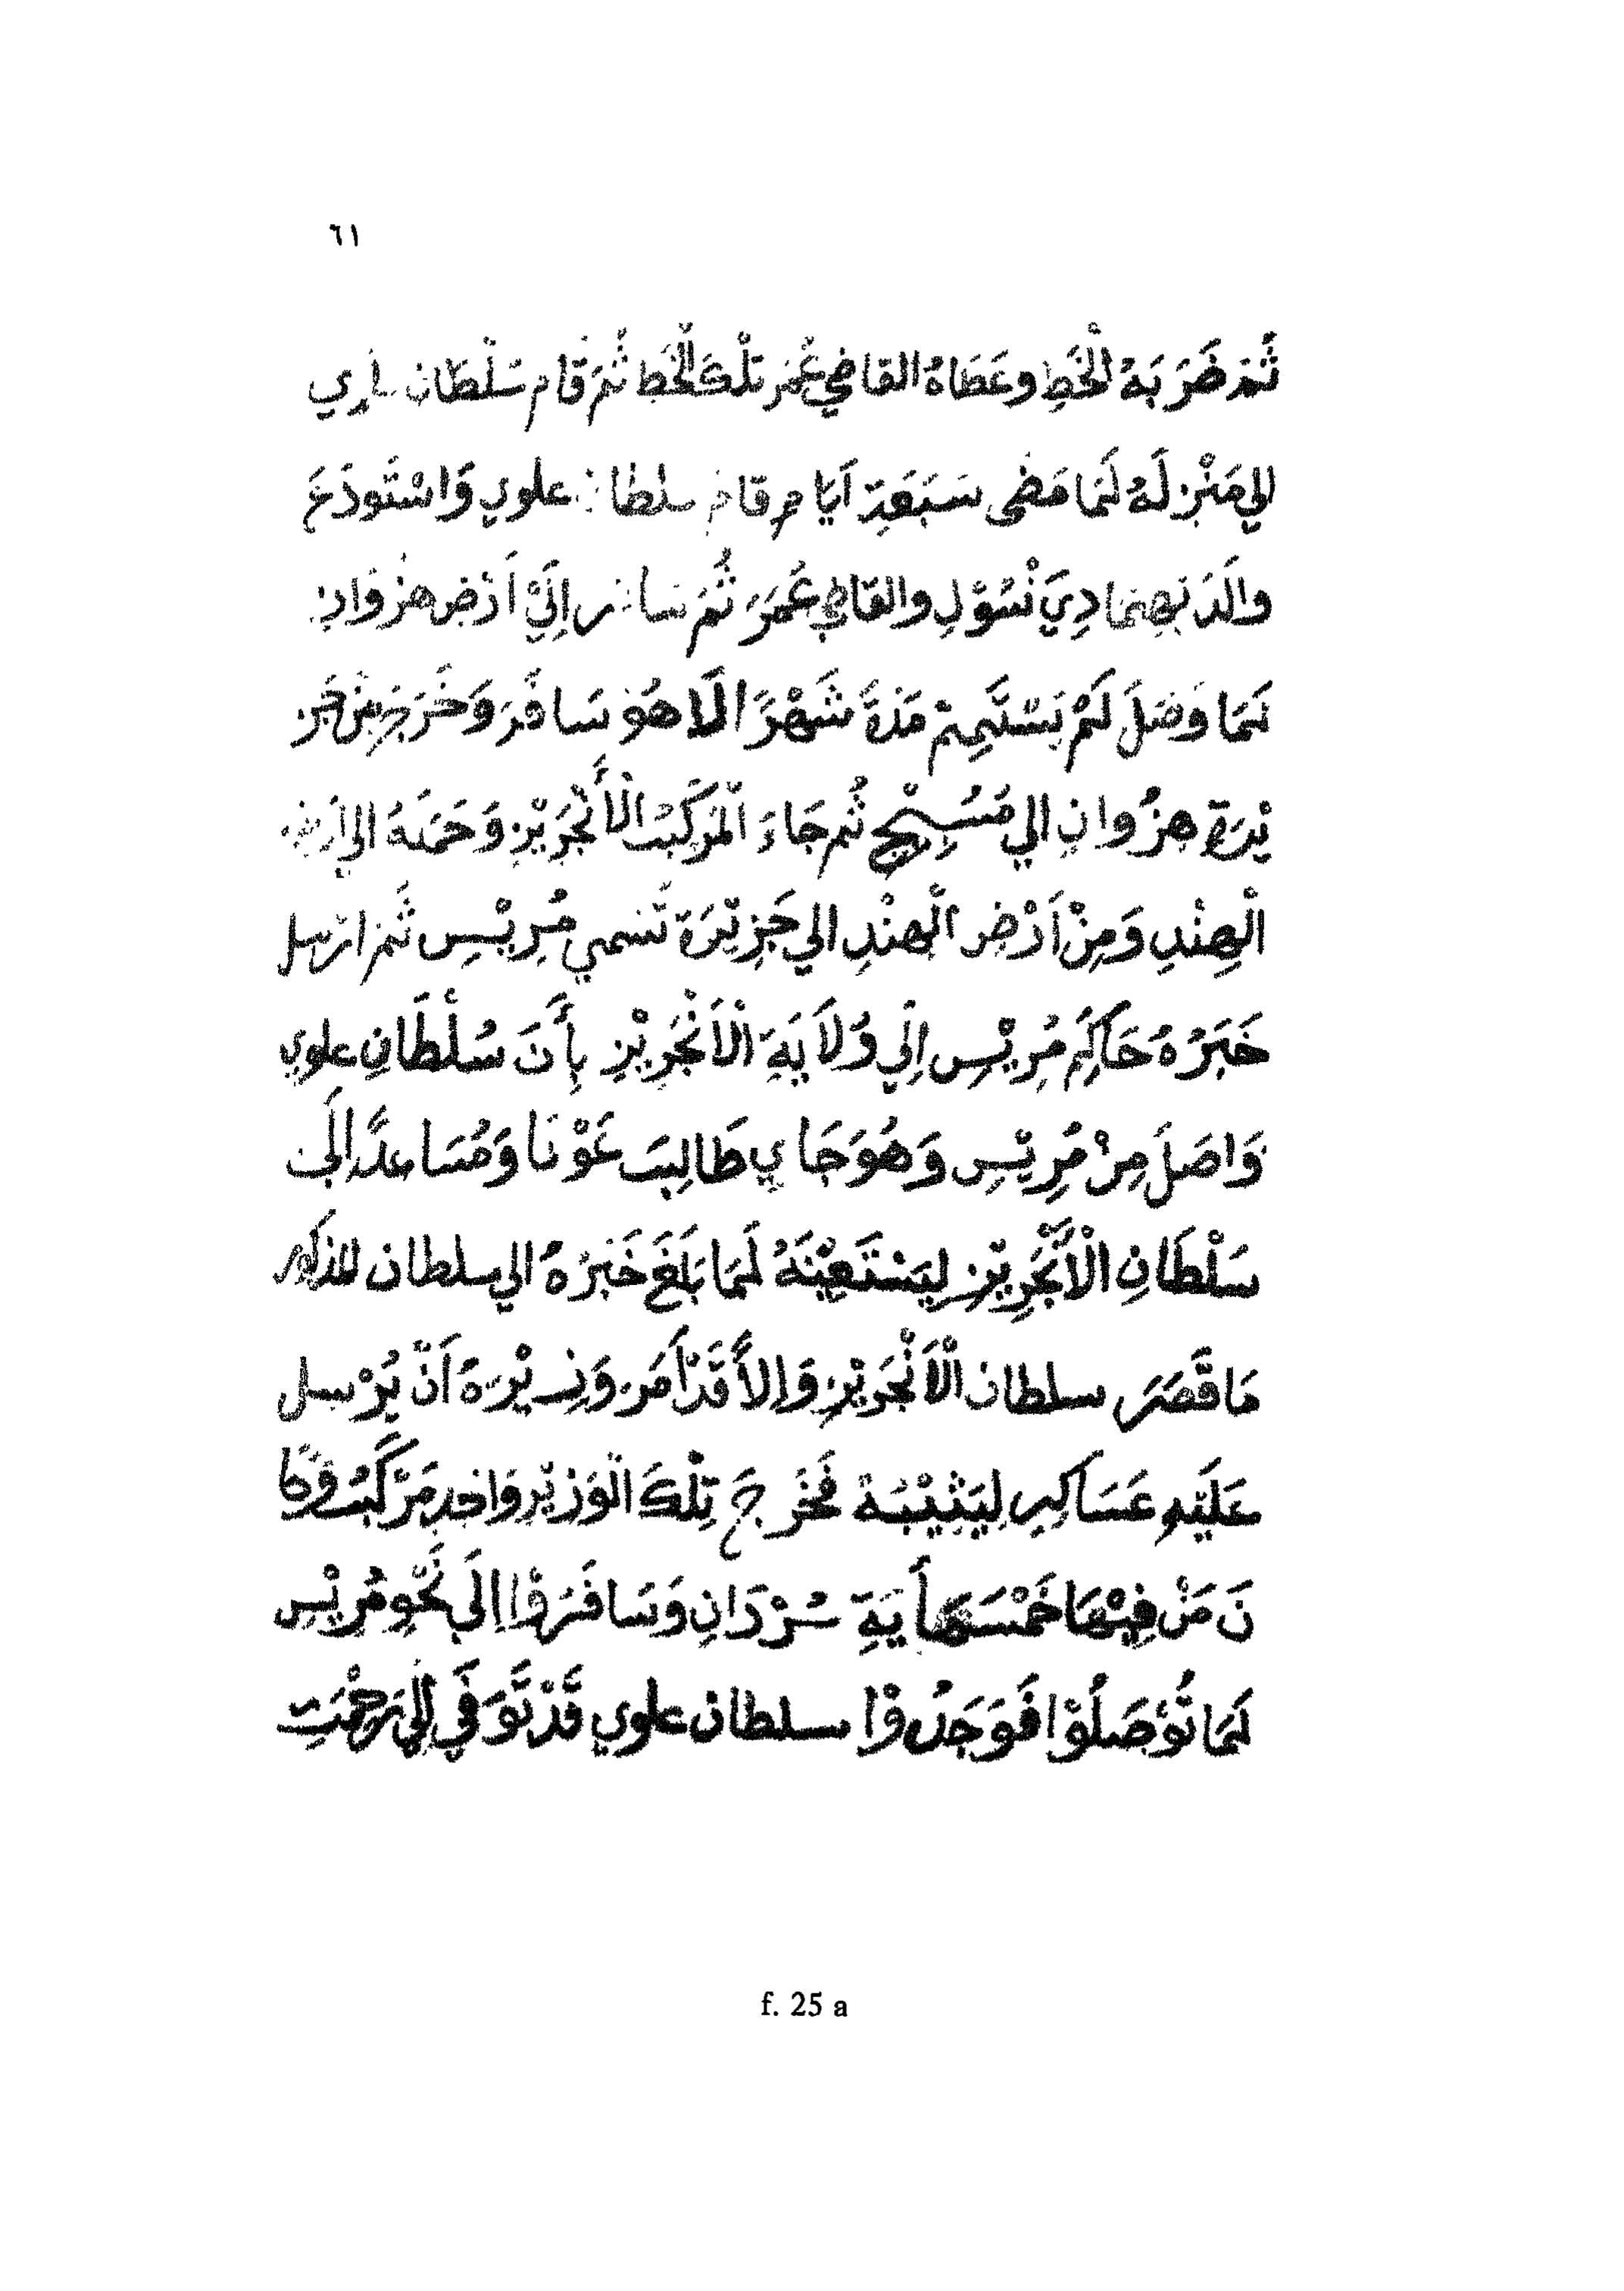 ٦١
ثُمَّ ضَرَبَهُ الْخَطِ وعَطَاهُ القاضي عُمَر تلْكَ الْخَط ثُمَّ قام سُلْطَان علوي
الي مَنْزِلَهُ لَمَا مَضى سَبَعَةِ آيَامٍ قام سلطان علوي وَاسْتَودَعَ
والَدَيْهِمَا دِيَ نْسُوْلِ والقاضِي عُمَرَ ثُمَّ سافر اِلَيْ اَرْضِ هنزوان
لَمَا وَصَلَ لَمْ يَسْتَتِمِمْ مَدَةَ شَهْرًا الَا هُوَ سَافَرَ وَخَرَجَ مِنْ جَزِ
يْرَةِ هنزُوانِ الي مُسَبِيْجِ ثُم جَاءَ الْمَرْكَبْ الْأَنْجَرَيْزِ وَحَمَلَهُ الي اَرْضِ
الْهِنْدِ وَمِنْ اَرْضِ الْهِنْدِ الي جَزِيْرَة تَسمي مُرِيْسِ ثُمَّ ارْسل
خَبَرُهُ حَاكِمُ مُرِيْسِ اِلَي وُلَايَةِ الْاَنْجَرِيْزِ بِأَنَ سُلْطَانِ علوي
وَاصَلَ مِنْ مُرِيْسِ وَهُوَ جَاي طَالِبَ عَوْنَا وَمُسَاعدًا اِلَى
سَلْطَانِ الْاَنْجَرِيْزِ لِيَسْتَعِيْنَهُ لَمَا بَلَغَ خَبَرُهُ الي سلطان المذكور
مَا قَصَرَ سلطان الْاَنْجَرَيْزِ وَاِلاَّ قَدْ اَمَرَ وَزِيْرَهُ اَنْ يُرْسِل
عَلَيْهِ عَسَاكِرِ لِيَثِيْبَهُ فَخَرَجَ تِلْكَ الْوَزِيْرِ وَاحِدِ مَرْكَبُ وَكَا
نَ مَنْ فِيْهَا خَمْسَمِأَيَةِ سُرْدَانِ وَسَافَرُوْا اِلَي نَحْوِ مُرِيْسِ
لَمَا تُوَصَلُوْا فَوَجَدُوْا سلطان علوي قَدْ تَّوَفَي اِلَي رَحْمَتِ
f. 25 a